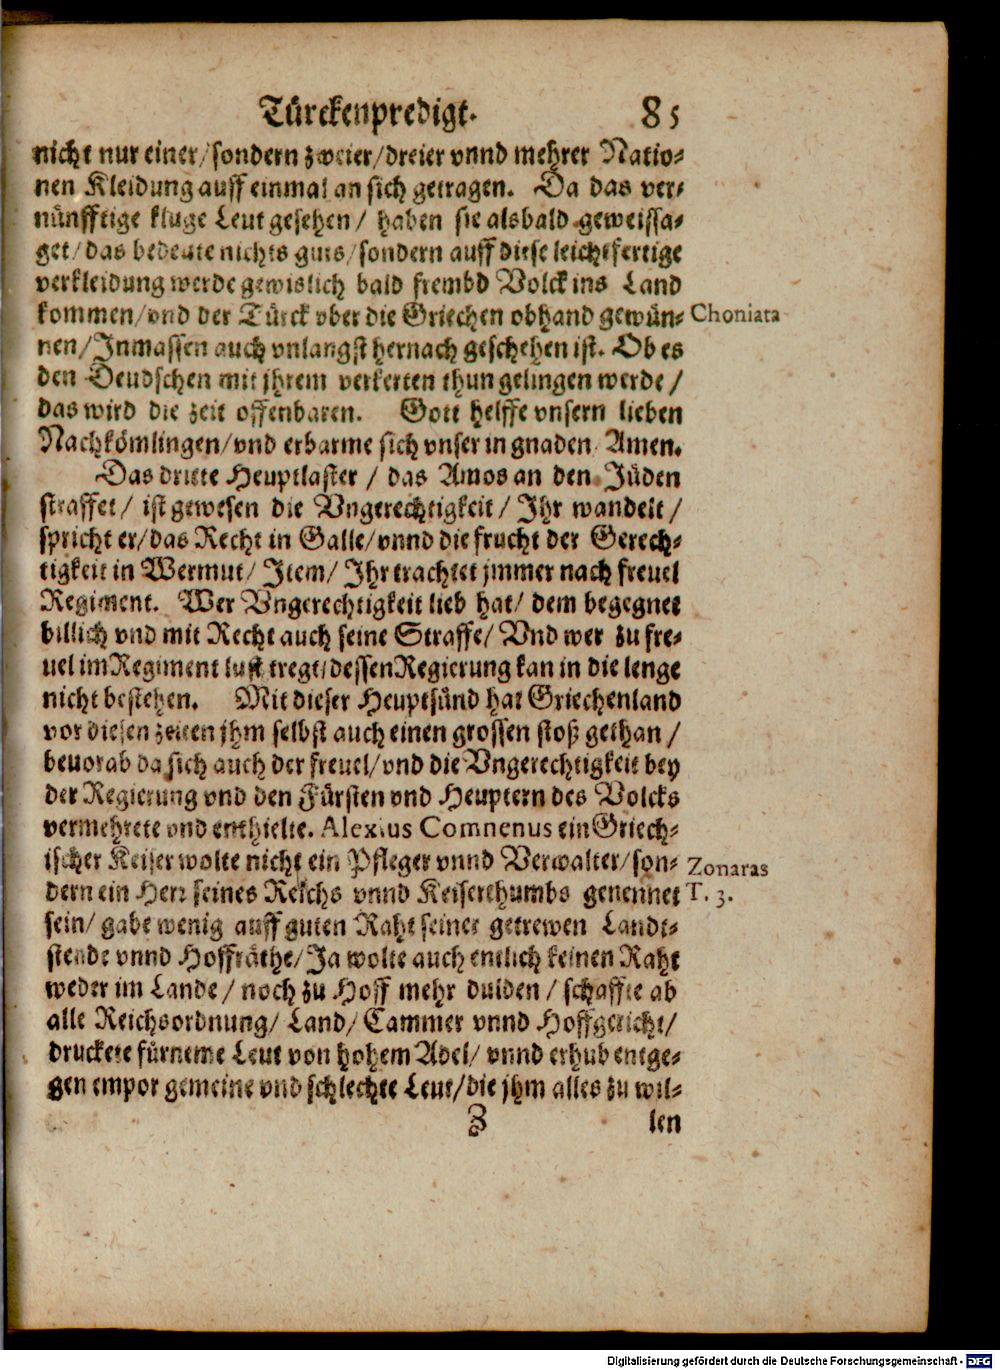 Türckenpredigt. 85
nicht nur einer/sondern zweier/dreier vnnd mehrer Natio-
nen Kleidung auff einmal an sich getragen. Da das ver-
nünfftige kluge Leut gesehen/ haben sie alsbald geweissa-
get/das bedeute nichts guts/sondern auff diese leichtfertige
verkleidung werde gewislich bald frembd Volck ins Land
kommen/vnd der Türck vber die Griechen obhand gewün- Choniata
nen/Inmassen auch vnlangst hernach geschehen ist. Ob es
den Deudschen mit jhrem verkerten thun gelingen werde/
das wird die zeit offenbaren. Gott helffe vnsern lieben
Nachkömlingen/vnd erbarme sich vnser in gnaden Amen.
Das dritte Heuptlaster / das Amos an den Jüden
straffet/ ist gewesen die Vngerechtigkeit/ Ihr wandelt/
spricht er/das Recht in Galle/vnnd die frucht der Gerech-
tigkeit in Wermut/ Item/ Ihr trachtet jmmer nach freuel
Regiment. Wer Vngerechtigkeit lieb hat/ dem begegnet
billich vnd mit Recht auch seine Straffe/ Vnd wer zu fre-
uel im Regiment lust tregt/dessen Regierung kan in die lenge
nicht bestehen. Mit dieser Heuptsünd hat Griechenland
vor diesen zeiten jhm selbst auch einen grossen stoß gethan/
beuorab da sich auch der freuel/vnd die Vngerechtigkeit bey
der Regierung vnd den Fürsten vnd Heuptern des Volcks
vermehrete vnd enthielte. Alexius Comnenus ein Griech-
ischer Keiser wolte nicht ein Pfleger vnnd Verwalter/son- Zonaras
dern ein Herr seines Reichs vnnd Keiserthumbs genennet T. 3.
sein/ gabe wenig auff guten Raht seiner getrewen Landt-
stende vnnd Hoffräthe/Ja wolte auch entlich keinen Raht
weder im Lande/ noch zu Hoff mehr dulden/ schaffte ab
alle Reichsordnung/ Land/ Cammer vnnd Hoffgericht/
druckete fürneme Leut von hohem Adel/ vnnd erhub entge-
gen empor gemeine vnd schlechte Leut/die jhm alles zu wil-
Z len
Digitalisierung gefördert durch die Deutsche Forschungsgemeinschaft - DFG